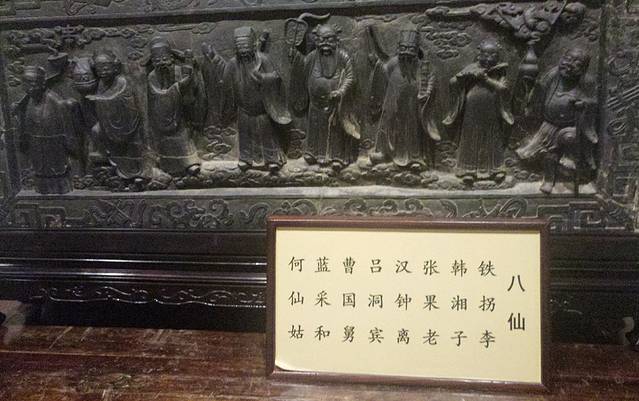 八仙
铁拐李
韩湘子
张果老
汉钟离
吕洞宾
曹国舅
蓝采和
何仙姑